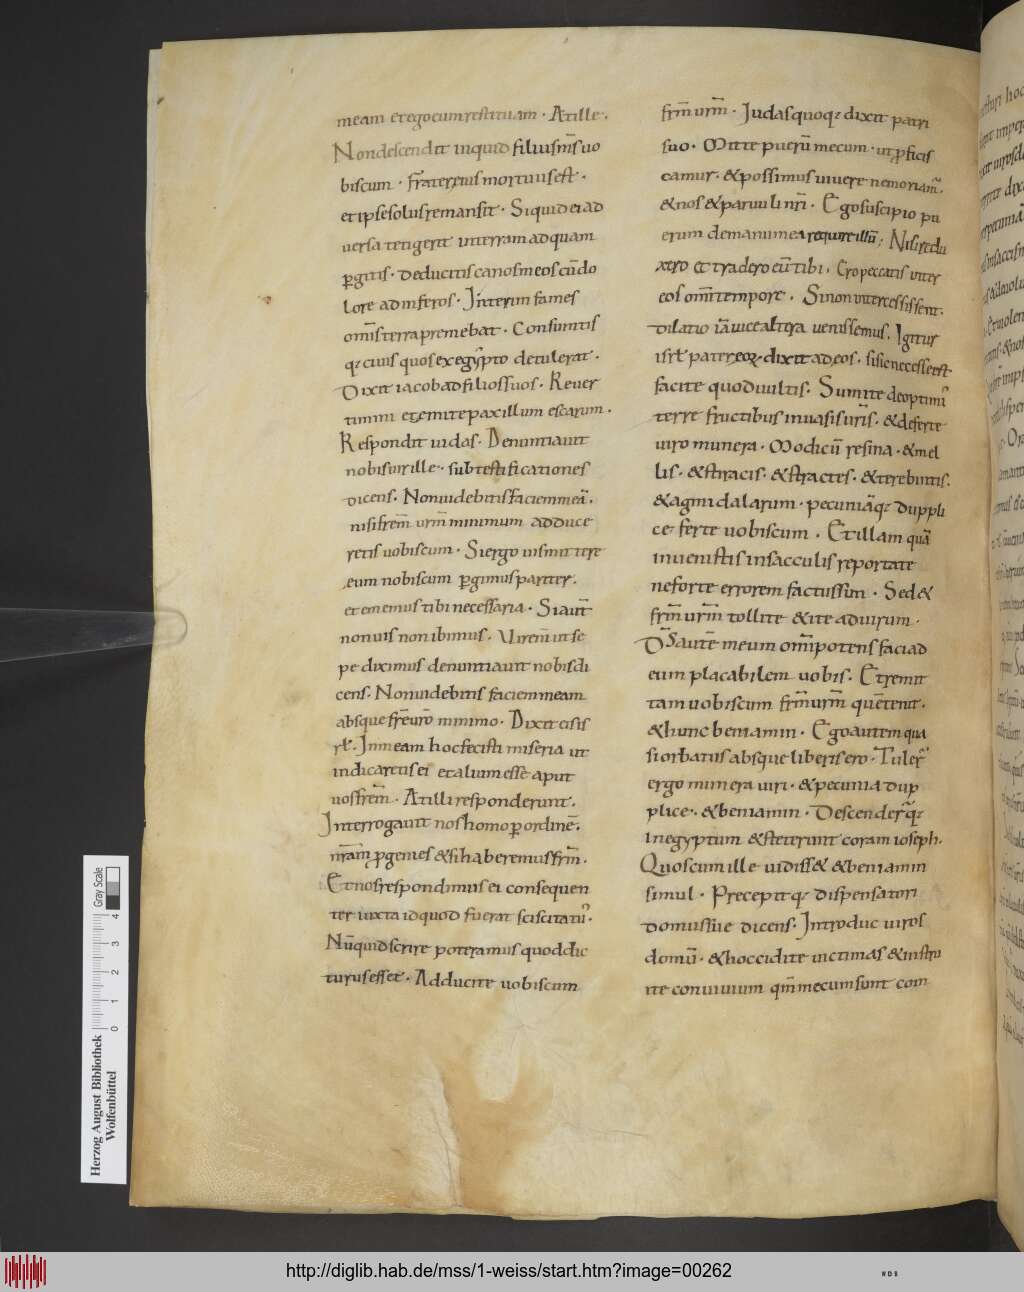 meam et ego eum restituam · Atille ·
Non descendit inquid filius m̄s uo
biscum · Frater eius mortuus est ·
et ipse solus remansit · Siquid ei ad
uersa tetigerit in terram ad quam
ꝑgitis · deducitis canos meos cū do
lore ad inferos · Interim fames
om̄is terra premebat · Consumtis
q; ciuis quos ex egypto detulerat ·
Dixit iacob ad filios suos · Reuer
timini et emite paxillum escarum ·
Respondit iudas · Denuntiauit
nobis uir ille · sub testificationes
dicens · Non uidebitis faciem meā ·
nisi fr̄em ur̄m minimum adduce
retis uobiscum · Si ergo uis mittere
eum nobiscum ꝑgimus pariter ·
et ememus tibi necessaria · Si aut̄
non uis non ibimus · Uir enī ut se
pe diximus denuntiauit nobis di
cens · Non uidebitis faciem meam
absque fr̄e ur̄o minimo · Dixit eis is
rł · In meam hoc fecisti miseria ut
indicaretis ei et alium esse aput
uos fr̄em · At illi responderunt ·
Interrogauit nos homo ꝑ ordinē ·
nr̄am ꝓgenies & si haberemus fr̄m ·
Et nos respondimus ei consequen
ter iuxta id quod fuerat sciscitatu᷒ ·
Nūquid scrire poteramus quod dic
turus esset · Adducite uobiscum
fr̄m ur̄m · Iudas quoq; dixit patri
suo · Mitte puerū mecum · ut ꝓficis
camur · & possimus uiuere ne moriam᷒ ·
& nos & paruuli nr̄i · Ego suscipio pu
erum de manu mea require illū ; Nisi redu
xero et tradero eū tibi · Ero peccati inter
eos om̄i tempore · Si non intercessissent ·
dilatio iā uice altera uenissemus · Igitur
isrł pater eoꝝ · dixit ad eos · si sic necesse est
facite quod uultis · Sumite de optimi᷒
terre fructibus in uasis ur̄is · & deferte
uiro munera · Modicū resina · & mel
lis · & stracis · & stractes · & terebintis ·
& agmidalarum · pecuniāq; duppli
ce · ferte uobiscum · Et illam quā
inuenistis in sacculis reportate
ne forte errorem factus sūn · Sed &
fr̄m ur̄m tollite & ite ad uirum ·
D̄s autē meum om̄ipotens faciad
eum placabilem uobis · Et remit
tam uobiscum fr̄m ur̄m quē tenit ·
& hunc beniamin · Ego autem qua
si orbatus absque liberis ero · Tuler᷒
ergo munera uiri · & pecunia dup
plice · & beniamin · Descender᷒q;
in egyptum & steterunt coram ioseph ·
Quos cum ille uidiss& & beniamin
simul · Precepit q; dispensatori
domus sūe dicens · Introduc uiros
domū · & hoccidite uictimas & instru
ite conuiuium qm̄ mecum sunt com
Herzog August Bibliothek
Wolfenbüttel
0 1 2 3 4
Gray Scale
http://diglib.hab.de/mss/1-weiss/start.htm?image=00262